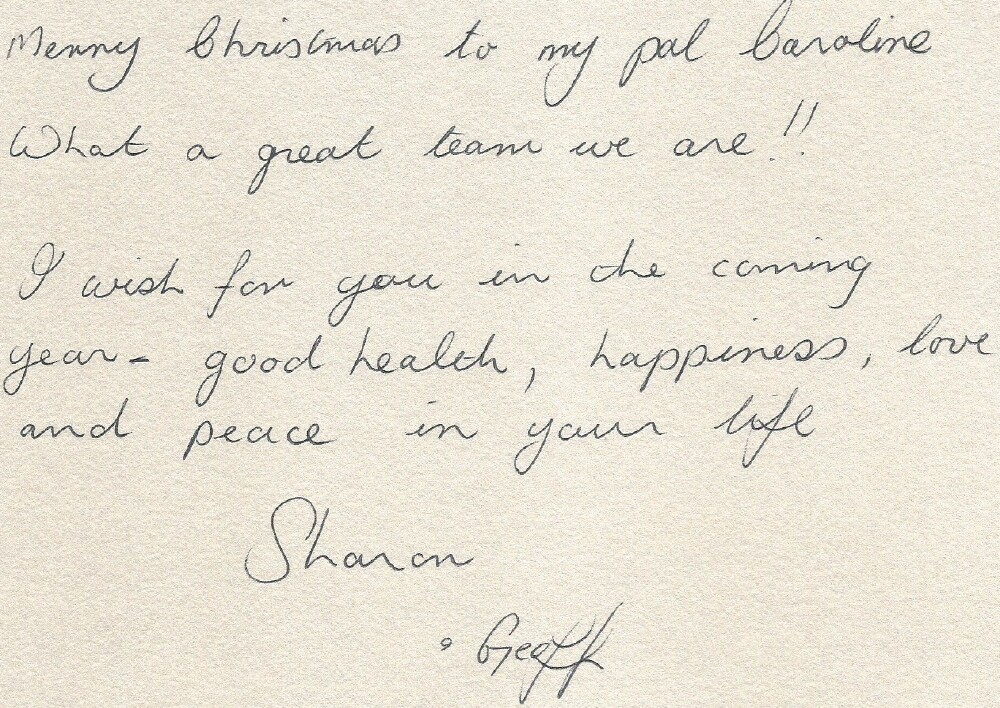 Merry Christmas to my pal Caroline
What a great team we are!!
I wish for you in the coming
year - good health, happiness, love
and peace in your life
Sharon
& Geoff